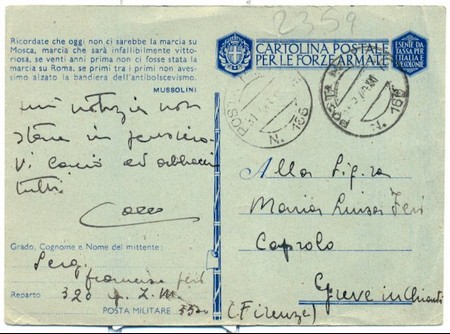 2359
Ricordate che oggi non ci sarebbe la marcia su
Mosca, marcia che sarà infallibilmente vitto-
riosa, se venti anni prima non ci fosse stata la
marcia su Roma, se primi tra i primi non aves-
simo alzato la bandiera dell'antibolscevismo.
MUSSOLINI
CARTOLINA POSTALE
PER LE FORZE ARMATE
ESENTE DA
TASSA PER
L'ITALIA E
POSTA
N. 156
POSTA
N. 156
notizie non
stare in pensiero
Vi bacio ed abbraccio
tutti
Alla Sig.ra
Maria Luisa
Greve in Chianti
(Firenze)
Grado, Cognome e Nome del mittente:
Serg.
Reparto 320
POSTA MILITARE